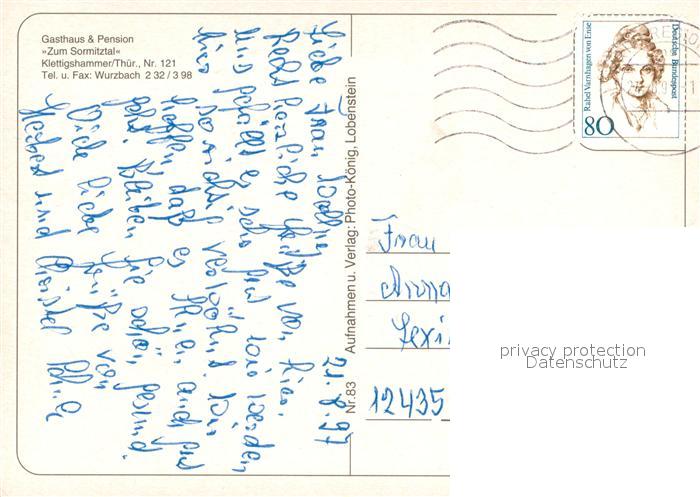 Gasthaus & Pension
»Zum Sormitztal«
Klettigshammer/Thür., Nr. 121
Tel. u. Fax: Wurzbach 2 32 / 3 98
21.8.97
Liebe Frau
Recht herzliche Grüße von hier.
Uns gefällt es sehr gut wir werden
hier so richtig verwöhnt. Wir
hoffen daß es Ihnen auch gut
geht. Bleiben Sie schön gesund.
Viele liebe Grüße von
Herbert und Christel
Nr. 83 Aufnahmen u. Verlag: Photo-König, Lobenstein
Rahel Varnhagen von Ense
Deutsche Bundespost
80
Frau
12435
privacy protection
Datenschutz